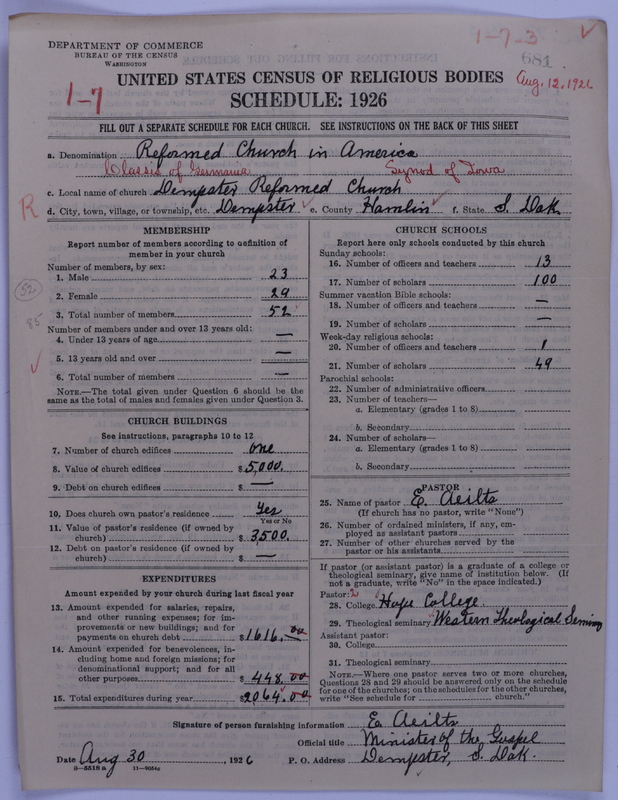 DEPARTMENT OF COMMERCE
BUREAU OF THE CENSUS
WASHINGTON
1-7-3
681
Aug. 12, 1926
1-7
UNITED STATES CENSUS OF RELIGIOUS BODIES
SCHEDULE: 1926
FILL OUT A SEPARATE SCHEDULE FOR EACH CHURCH. SEE INSTRUCTIONS ON THE BACK OF THIS SHEET
a. Denomination Reformed Church in America
Classis of Germania Synod of Iowa
c. Local name of church Dempster Reformed Church
R
d. City, town, village, or township, etc. Dempster e. County Hamlin f. State S. Dak
MEMBERSHIP
Report number of members according to definition of
member in your church
Number of members, by sex:
1. Male 23
52
2. Female 29
85
3. Total number of members 52
Number of members under and over 13 years old:
4. Under 13 years of age —
5. 13 years old and over —
6. Total number of members —
NOTE.—The total given under Question 6 should be the
same as the total of males and females given under Question 3.
CHURCH BUILDINGS
See instructions, paragraphs 10 to 12
7. Number of church edifices one
8. Value of church edifices $ 5,000.
9. Debt on church edifices $ —
10. Does church own pastor's residence Yes
Yes or No
11. Value of pastor's residence (if owned by
church) $ 3,500.
12. Debt on pastor's residence (if owned by
church) $ —
EXPENDITURES
Amount expended by your church during last fiscal year
13. Amount expended for salaries, repairs,
and other running expenses; for im-
provements or new buildings; and for
payments on church debt $ 1616.00
14. Amount expended for benevolences, in-
cluding home and foreign missions; for
denominational support; and for all
other purposes $ 448.00
15. Total expenditures during year $ 2064.00
CHURCH SCHOOLS
Report here only schools conducted by this church
Sunday schools:
16. Number of officers and teachers 13
17. Number of scholars 100
Summer vacation Bible schools:
18. Number of officers and teachers —
19. Number of scholars —
Week-day religious schools:
20. Number of officers and teachers 1
21. Number of scholars 49
Parochial schools:
22. Number of administrative officers
23. Number of teachers—
a. Elementary (grades 1 to 8)
b. Secondary
24. Number of scholars—
a. Elementary (grades 1 to 8)
b. Secondary
PASTOR
25. Name of pastor E. Aeilts
(If church has no pastor, write "None")
26. Number of ordained ministers, if any, em-
ployed as assistant pastors
27. Number of other churches served by the
pastor or his assistants
If pastor (or assistant pastor) is a graduate of a college or
theological seminary, give name of institution below. (If
not a graduate, write "No" in the space indicated.)
Pastor: 2
28. College Hope College
29. Theological seminary Western Theological Seminary
Assistant pastor:
30. College
31. Theological seminary
NOTE.—Where one pastor serves two or more churches,
Questions 28 and 29 should be answered only on the schedule
for one of the churches; on the schedules for the other churches,
write "See schedule for church."
Signature of person furnishing information E. Aeilts
Official title Minister of the Gospel
Date Aug 30, 1926 P. O. Address Dempster, S. Dak.
11—9054